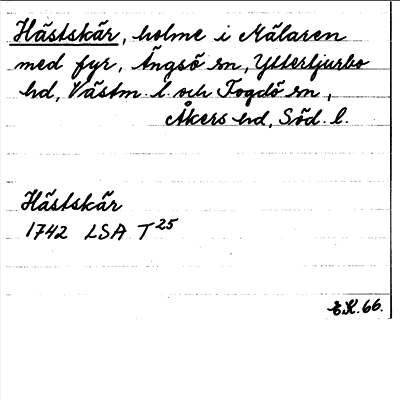 Hästskär, holme i Mälaren
med fyr, Ängsö sn, Yttertjurbo
hd, Västm. l. och Fogdö sn,
Åkers hd, Söd. l.
Hästskär
1742 LSA T 25
E.K. 66.